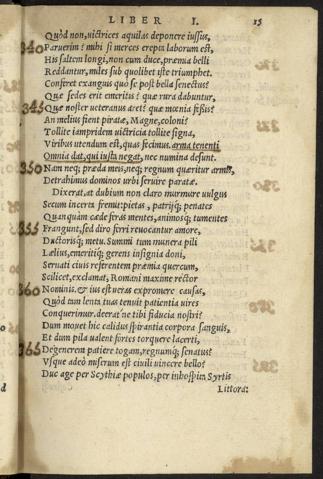 LIBER I. 15
Quòd non, uictrices aquilas deponere iussus,
340 Paruerim? mihi si merces erepta laborum est,
His saltem longi, non cum duce, præmia belli
Reddantur, miles sub quolibet iste triumphet.
Conferet exanguis quò se post bella senectus?
Quæ sedes erit emeritis? quæ rura dabuntur,
345 Quæ noster ueteranus aret? quæ mœnia fessis?
An melius fient piratæ, Magne, coloni?
Tollite iampridem uictricia tollite signa,
Viribus utendum est, quas fecimus. arma tenenti
Omnia dat, qui iusta negat, nec numina desunt.
350 Nam neq; præda meis, neq; regnum quæritur armis,
Detrahimus dominos urbi seruire paratæ.
Dixerat, at dubium non claro murmure uulgus
Secum incerta fremit: pietas, patrijq; penates
Quanquàm cæde feras mentes, animosq; tumentes
355 Frangunt, sed diro ferri reuocantur amore,
Ductorisq; metu. Summi tum munera pili
Lælius, emeritiq; gerens insignia doni,
Seruati ciuis referentem præmia quercum,
Si licet, exclamat, Romani maxime rector
360 Nominis, & ius est ueras expromere causas,
Quòd tam lenta tuas tenuit patientia uires
Conquerimur. deerat'ne tibi fiducia nostri?
Dum mouet hic calidus spirantia corpora sanguis,
Et dum pila ualent fortes torquere lacerti,
365 Degenerem patiere togam, regnumq; senatus?
Vsque adeò miserum est ciuili uincere bello?
Duc age per Scythiæ populos, per inhospita Syrtis
Littora: